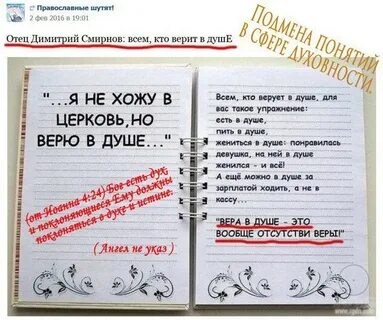 Православные шутят!
2 фев 2016 в 19:01
Отец Димитрий Смирнов: всем, кто верит в душЕ
ПОДМЕНА ПОНЯТИЙ
В СФЕРЕ ДУХОВНОСТИ.
"...Я НЕ ХОЖУ В
ЦЕРКОВЬ, НО
ВЕРЮ В ДУШЕ..."
(от Иоанна 4:24) Бог есть дух,
и поклоняющиеся Ему должны
поклоняться в духе и истине.
( Ангел не указ )
Всем, кто верует в душе, для
вас такое упражнение:
есть в душе,
пить в душе,
жениться в душе: понравилась
девушка, на ней в душе
женился - и всё!
А ещё можно в душе за
зарплатой ходить, а не в
кассу...
"ВЕРА В ДУШЕ - ЭТО
ВООБЩЕ ОТСУТСТВИ ВЕРЫ!"